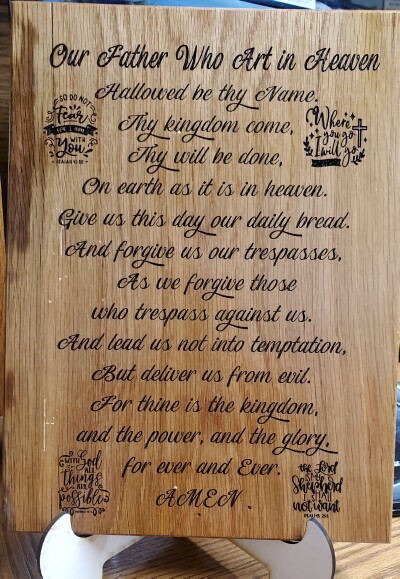 Our Father Who Art in Heaven
Hallowed be thy Name.
SO DO NOT
Fear
FOR I AM
WITH
You
ISAIAH 41:10
Thy kingdom come,
Where
you go
I will go
Thy will be done,
On earth as it is in heaven.
Give us this day our daily bread.
And forgive us our trespasses,
As we forgive those
who trespass against us.
And lead us not into temptation,
But deliver us from evil.
For thine is the kingdom,
and the power, and the glory,
for ever and Ever.
AMEN.
WITH God
ALL
things
ARE
possible
the Lord
IS MY
Shepherd
I SHALL
not want